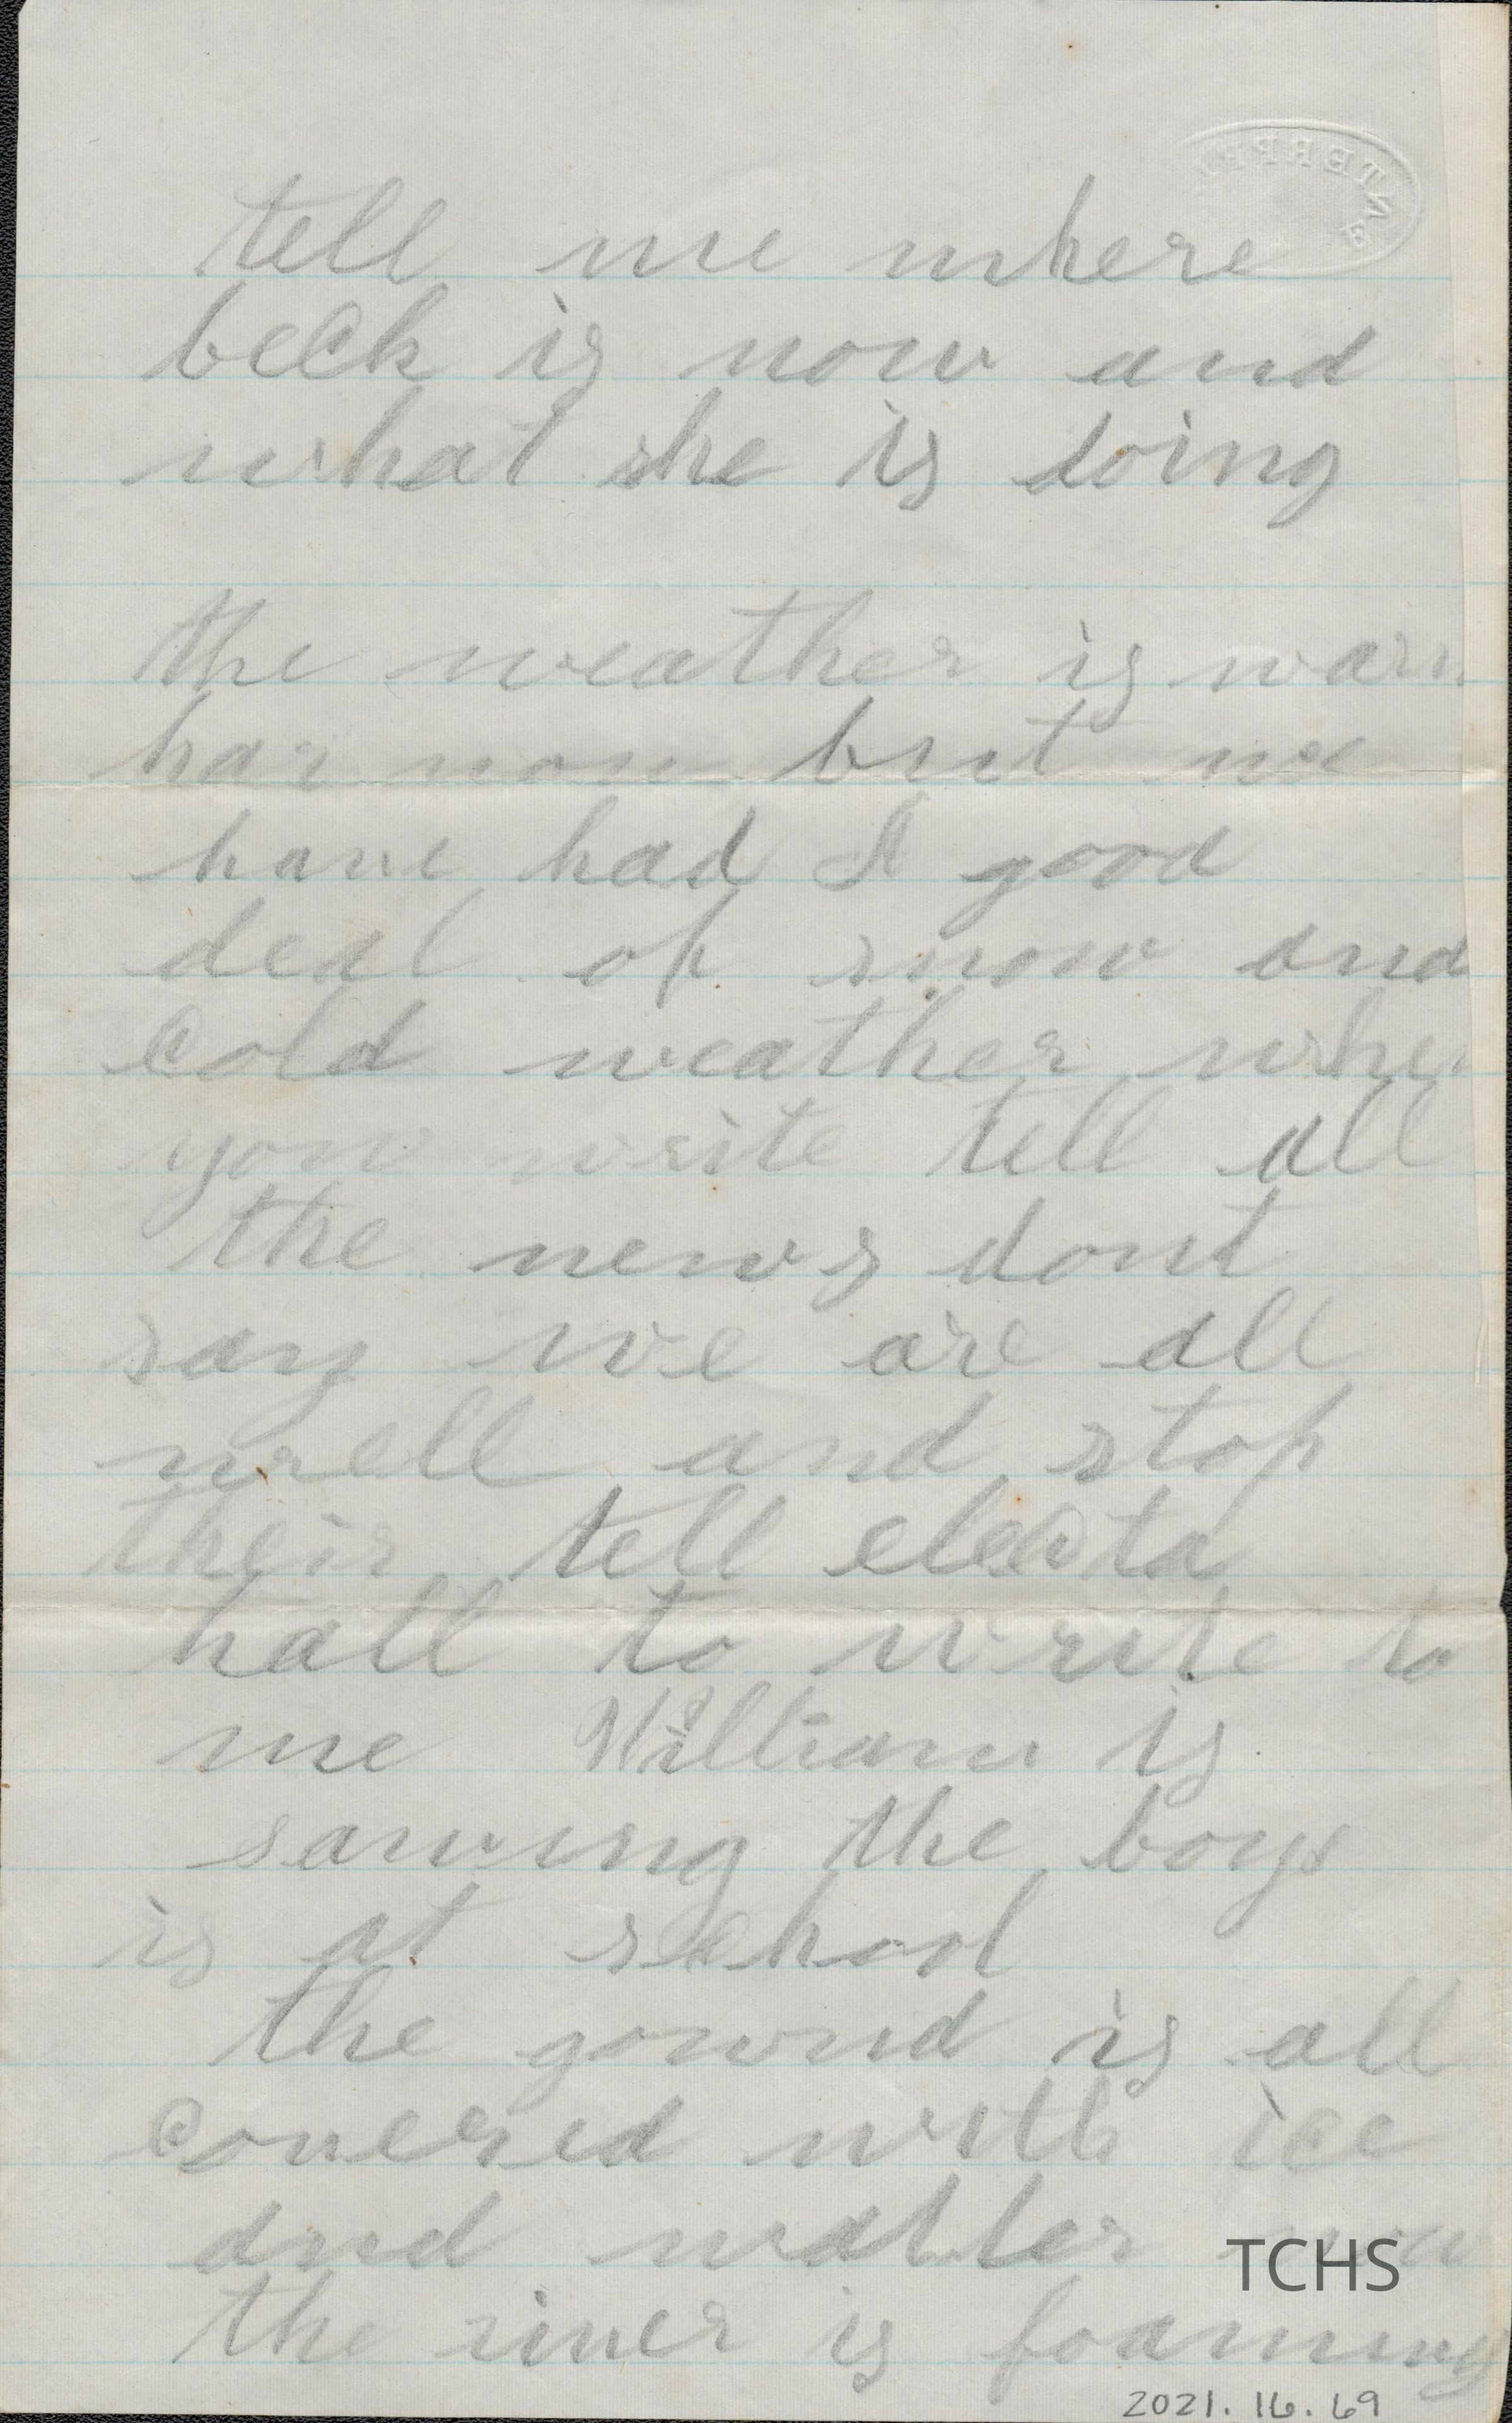 tell me where
beck is now and
what she is doing
the weather is warm
har now but we
have had A good
deal of snow and
Cold weather when
you write tell all
the news dont
say we are all
well and stop
their tell electa
hall to write to
me William is
sawing the boys
is at school
the gownd is all
covered with ice
and watter now
the river is foaming
TCHS
2021.16.69